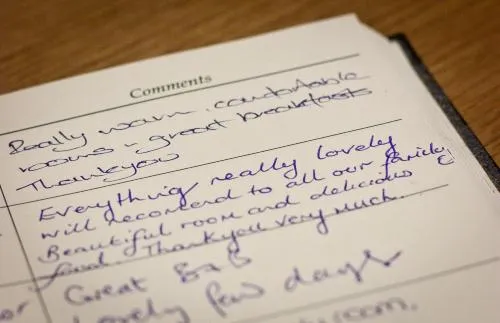 Comments
Really warm, comfortable
rooms - great breakfasts
Thankyou
Everything really lovely
will recomend to all our family
Beautiful room and delicious &
food. Thankyou very much.
Great B&B
Lovely few days
room.